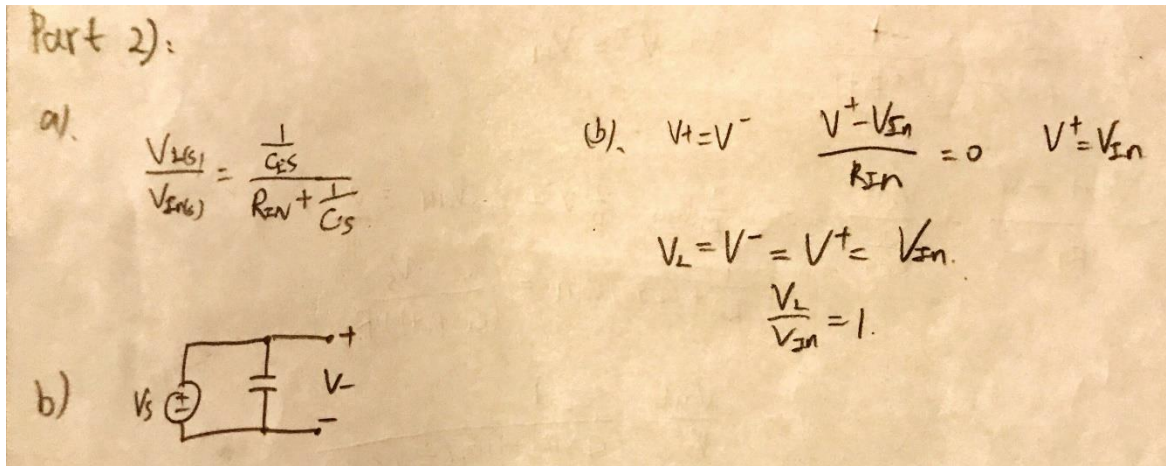 Part 2):
a).
V_L(s) / V_In(s) = (1 / C_i S) / (R_IN + 1 / C_i S)
(b). V+ = V^- (V^+ - V_In) / R_In = 0 V^+ = V_In
V_L = V^- = V^+ = V_In.
V_L / V_In = 1.
b) Vs + - + V- -